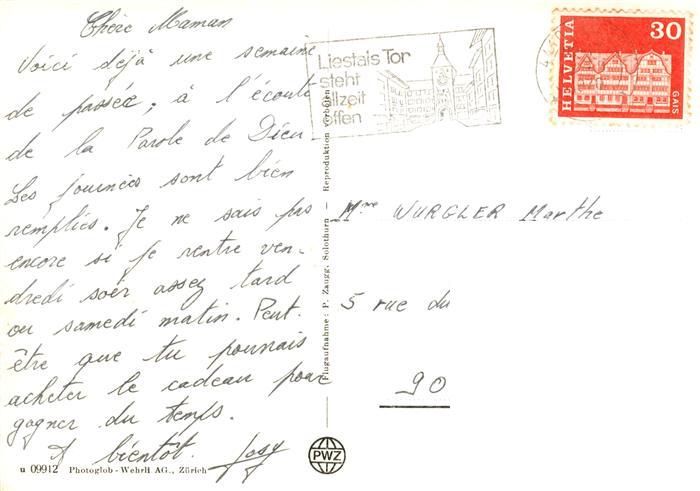 Chère Maman
Voici déjà une semaine
de passée, à l'écoute
de la Parole de Dieu
Les journées sont bien
remplies. Je ne sais pas
encore si je rentre ven-
dredi soir assez tard
ou samedi matin. Peut-
être que tu pourrais
acheter le cadeau pour
gagner du temps.
A bientôt. Josy
u 09912 Photoglob-Wehrli AG., Zürich
Flugaufnahme: P. Zaugg, Solothurn — Reproduktion verboten
PWZ
Liestals Tor
steht
allzeit
offen
HELVETIA
30
GAIS
Mme WURGLER Marthe
5 rue du
90